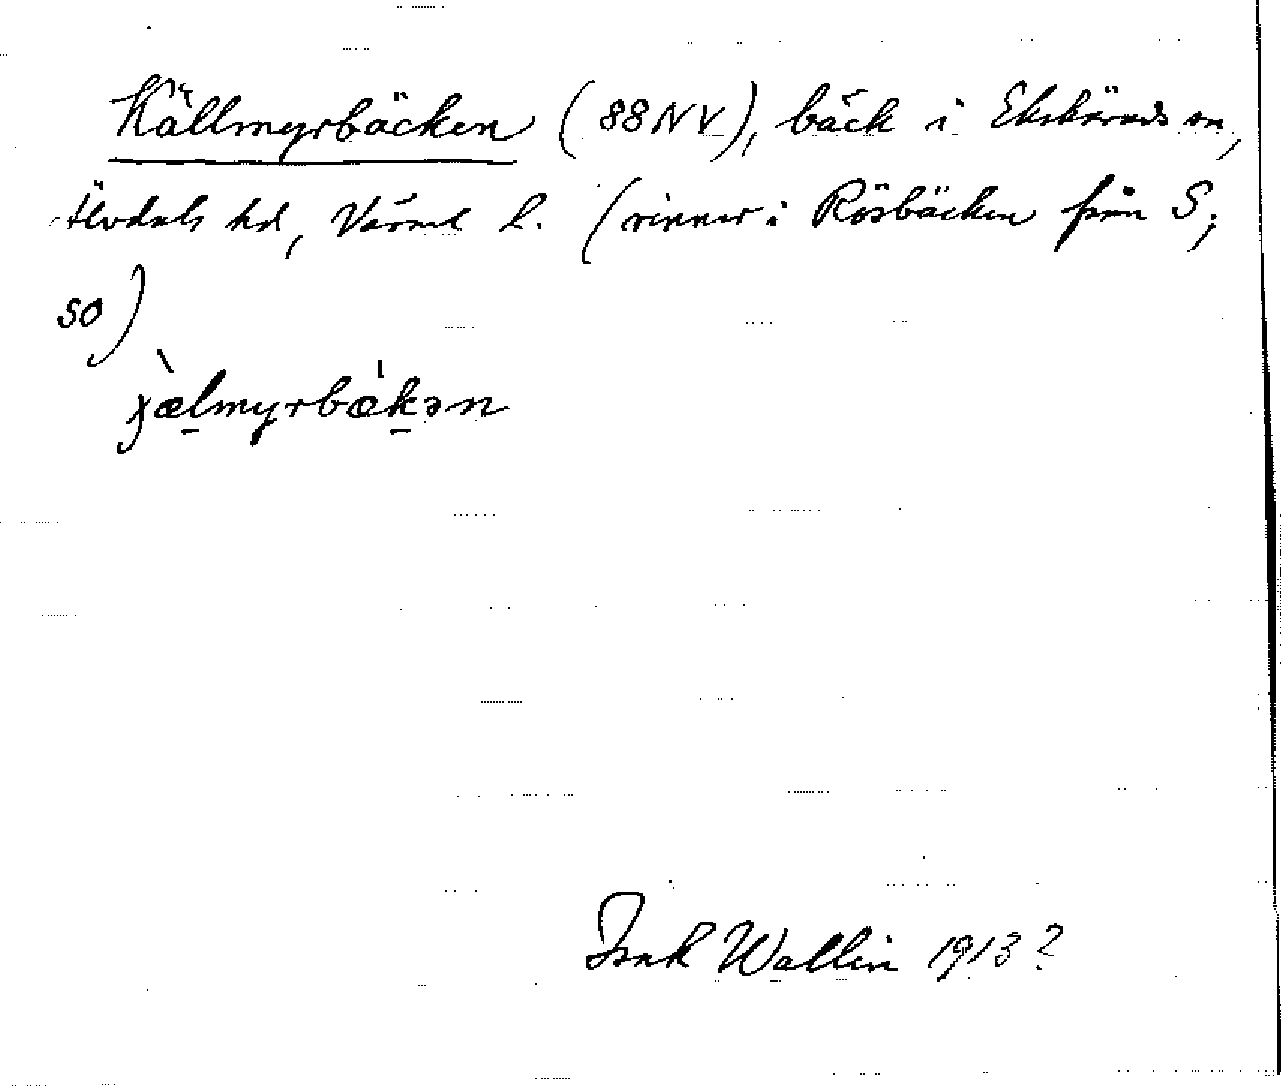 Källmyrbäcken (88NV), bäck i Ekshärads sn,
Älvdals hd, Värml l. (rinner i Rösbäcken från S;
SO)
Isak Wallin 1913?